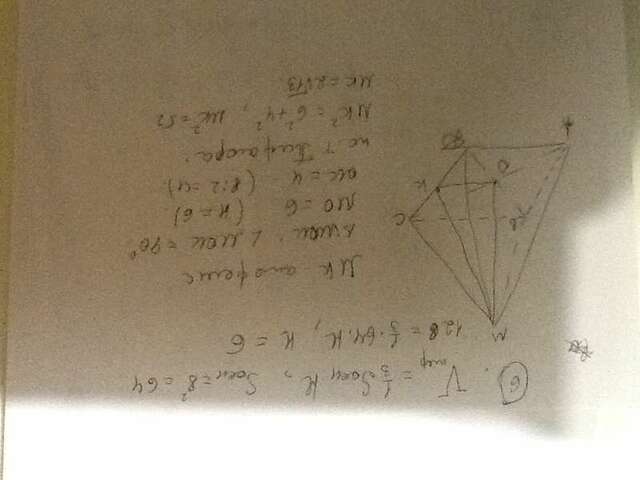 6. Vпир = 1/3 Sосн H, Sосн = 8² = 64
128 = 1/3 · 64 · H, H = 6
MK апофема
Δ MOK, ∠ MOK = 90°
MO = 6 (H = 6)
OK = 4 (8:2=4)
по т Пифагора:
MK² = 6² + 4², MK² = 52
MK = 2√13
M
C
B
K
O
A